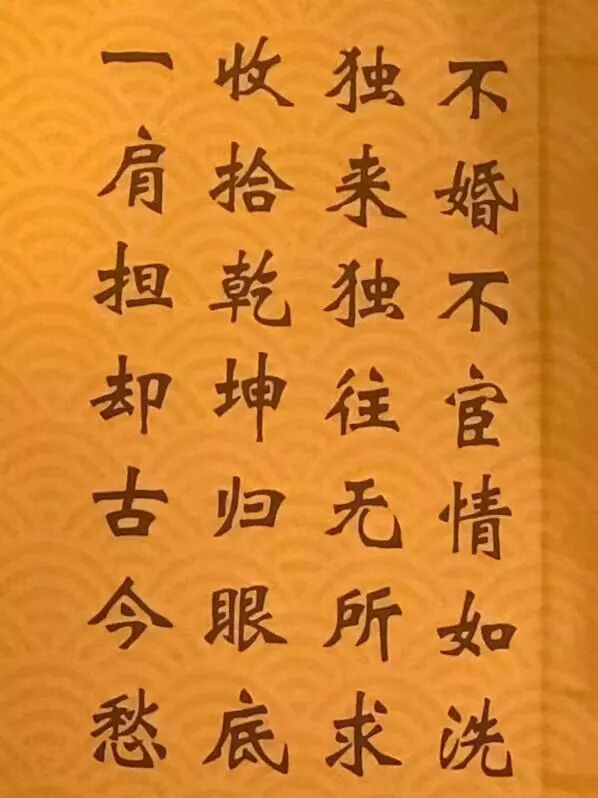 不婚不宦情如洗
独来独往无所求
收拾乾坤归眼底
一肩担却古今愁